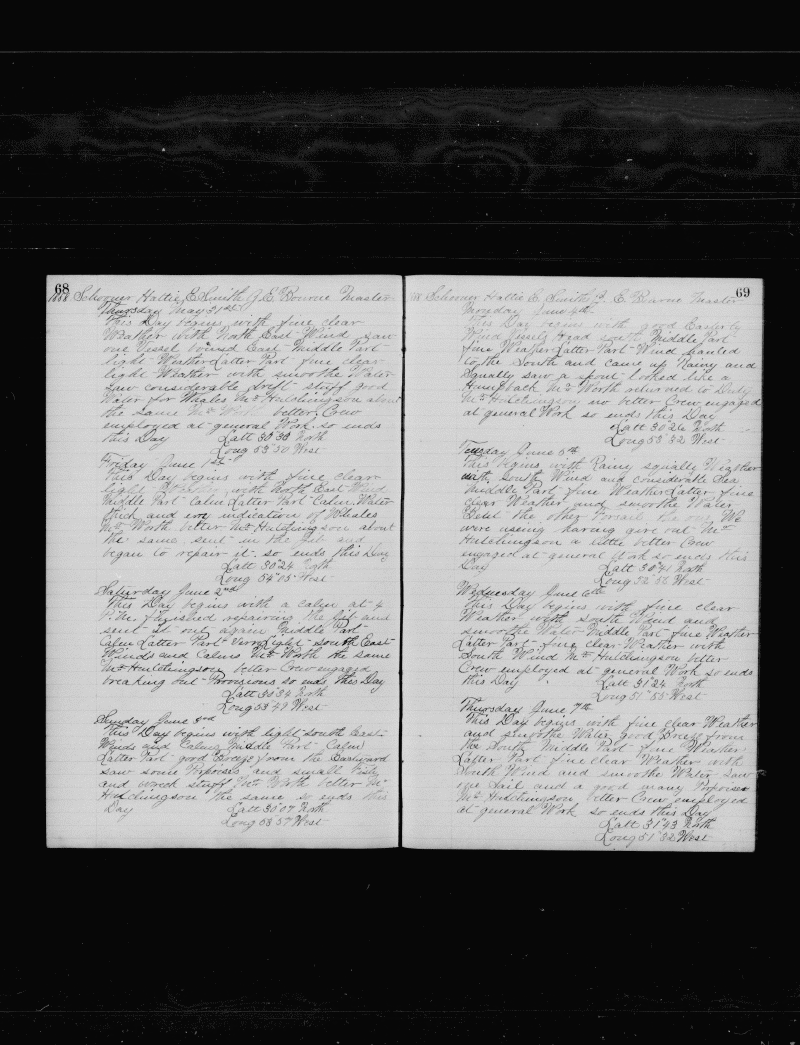 68
1888 Schooner Hattie E. Smith J. E. Bourne Master
Thursday May 31st
This Day begins with fine clear
Weather with North East Wind saw
one Vessel bound East Middle Part
light Weather Latter Part fine clear
light Weather with smoothe Water
saw considerable drift stuff good
Water for Whales Mr Hutchingson about
the same Mr Worth better Crew
employed at general Work. so ends
this Day Latt 30"33 North
Long 53"50 West
Friday June 1st
This Day begins with fine clear
light Weather with North East Wind
Middle Part Calm Latter Part Calm. Water
thick and indication of Whales
Mr Worth better Mr Hutchingson about
the same, sent in the Jib and
began to repair it. so ends this Day
Latt 30"24 North
Long 54"05 West
Saturday June 2nd
This Day begins with a calm at 4
P.M. finished repairing the Jib and
sent it out again Middle Part
Calm Latter Part Very Light South East
Winds and Calms Mr Worth the same
Mr Hutchingson better Crew engaged
breaking out Provisions so ends this Day
Latt 30"34 North
Long 53"49 West
Sunday June 3rd
This Day begins with light South East
Winds and Calms Middle Part Calm
Latter Part good Breeze from the Eastward
saw some Porpoises and small Fish
and wreck stuff Mr Worth better Mr
Hutchingson the same so ends this
Day Latt 30"07 North
Long 53"57 West
69
Schooner Hattie E. Smith J. E. Bourne Master
Monday June 4th
This Day begins with good Easterly
Wind Head Middle Part
fine Weather Latter Part Wind hauled
to the South and came up Rainy and
squally saw a spout looked like a
Humpback Mr Worth returned to Duty
Mr Hutchingson no better Crew engaged
at general Work so ends this Day
Latt 30"26 North
Long 53"32 West
Tuesday June 5th
This begins with Rainy squally Weather
with South Wind and considerable Sea
Middle Part fine Weather Latter fine
clear Weather and smoothe Water
the other the one We
were using having give out Mr
Hutchingson a little better Crew
engaged at general Work so ends this
Day Latt 30"41 North
Long 52"56 West
Wednesday June 6th
This Day begins with fine clear
Weather with South Wind and
smoothe Water Middle Part fine Weather
Latter Part fine clear Weather with
South Wind Mr Hutchingson better
Crew employed at general Work so ends
this Day Latt 31"24 North
Long 51"55 West
Thursday June 7th
This Day begins with fine clear Weather
and smoothe Water good Breeze from
the South Middle Part fine Weather
Latter Part fine clear Weather with
South Wind and smoothe Water saw
one Sail and a good many Porpoises
Mr Hutchingson better Crew employed
at general Work so ends this Day
Latt 31"43 North
Long 51"32 West